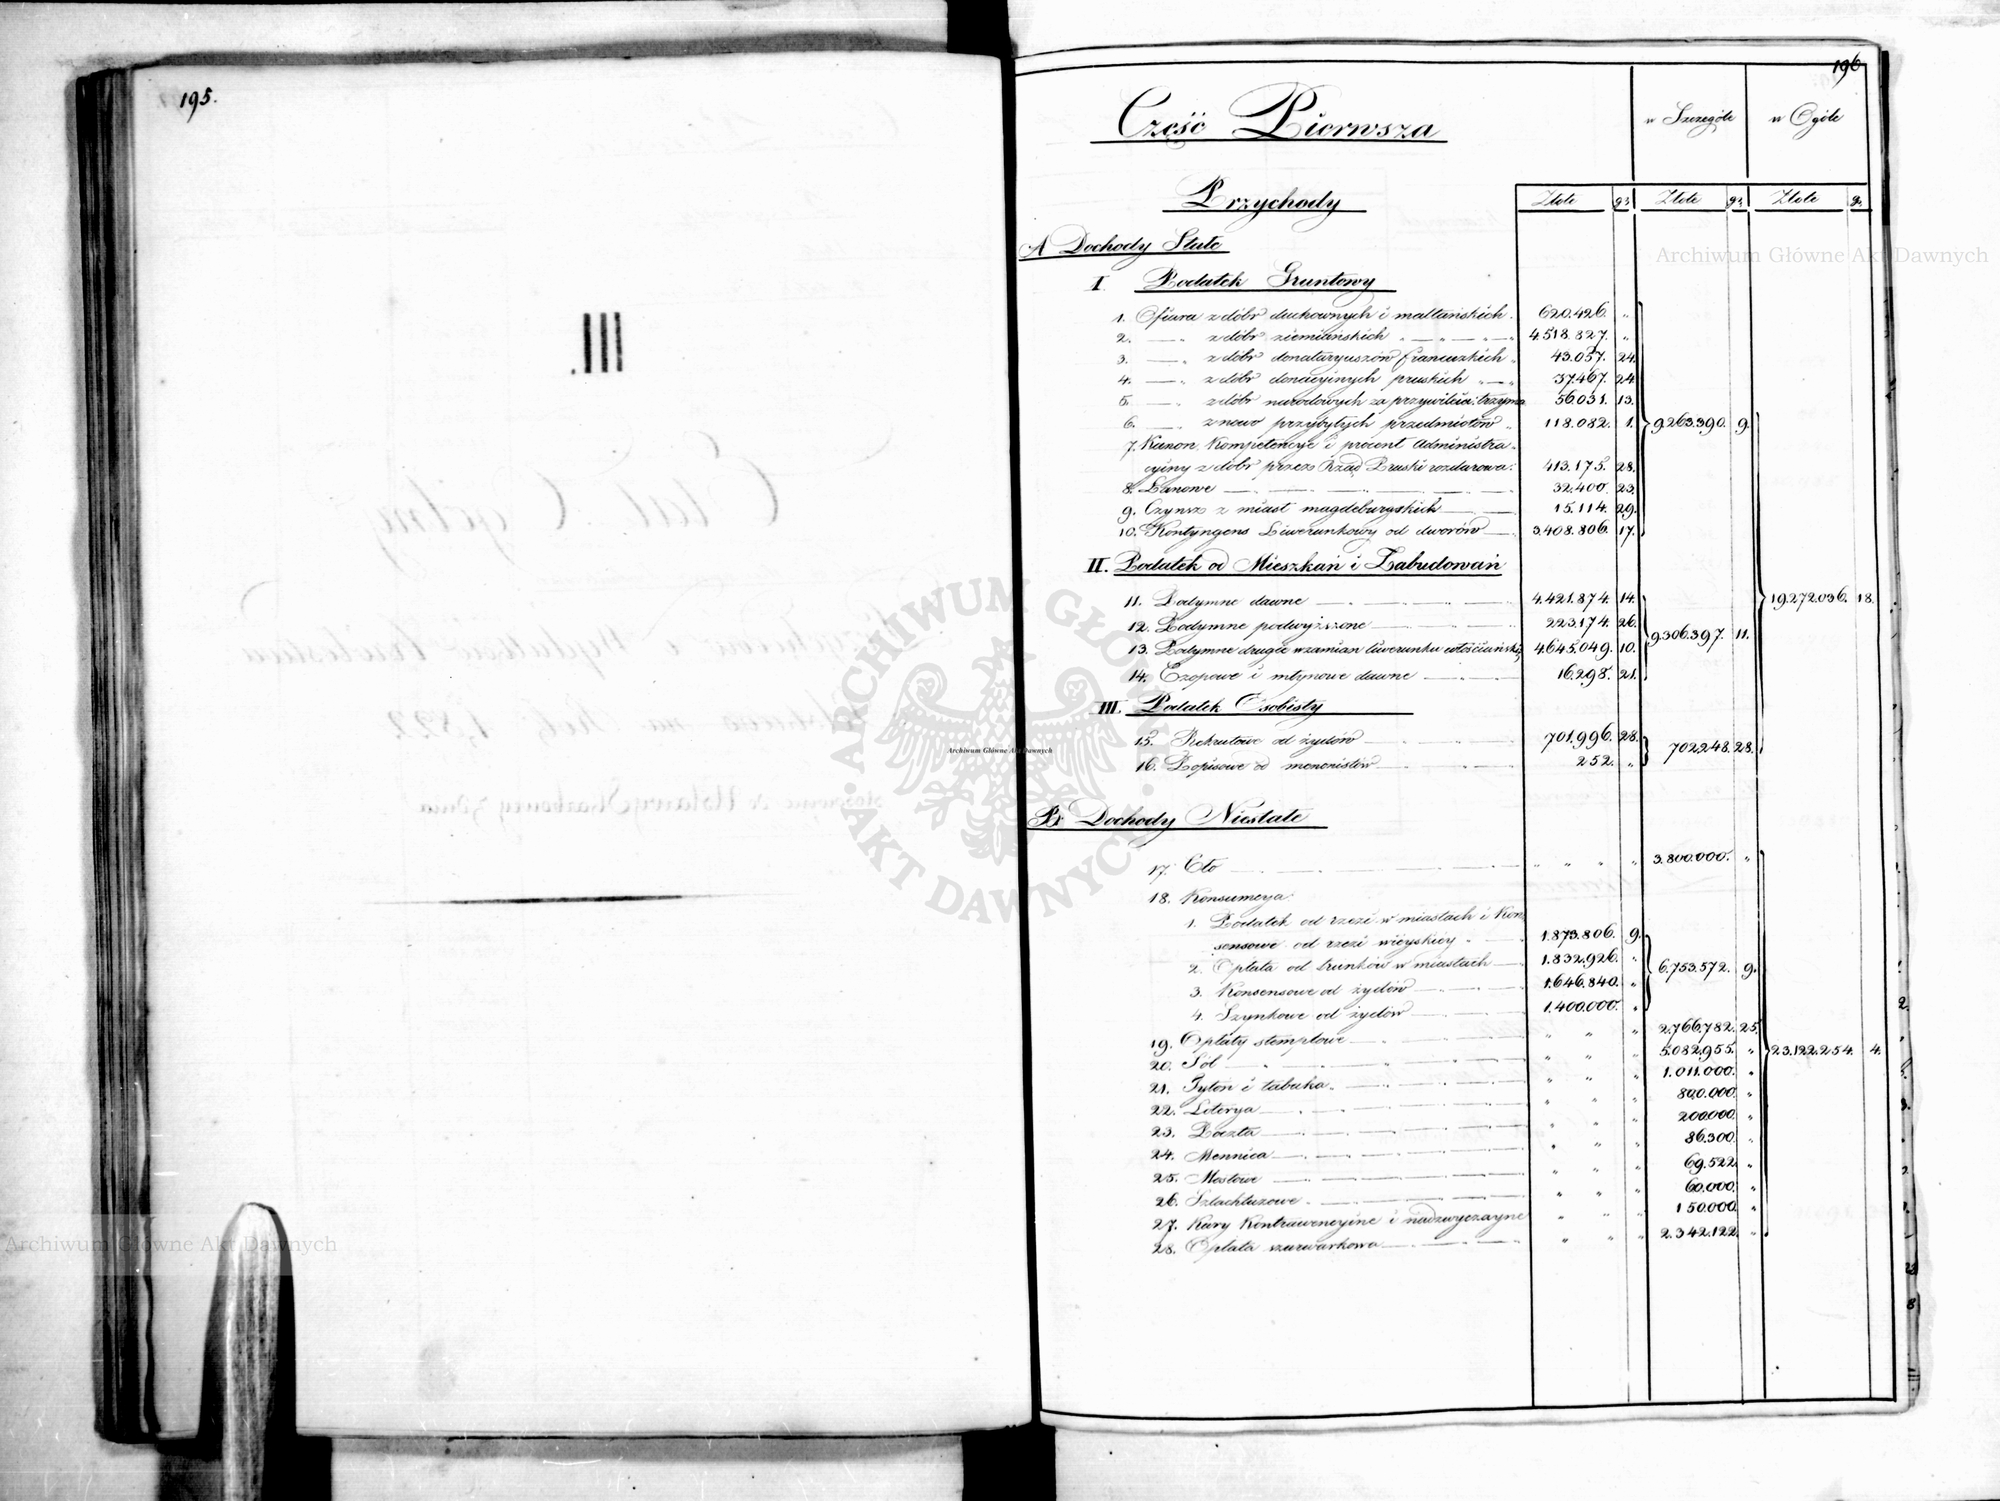 195.
196
Część Pierwsza
w Szczególe
w Ogóle
Przychody
Złote gr. Złote gr. Złote gr.
A Dochody Stałe
I Podatek Gruntowy
1. Ofiara z dóbr duchownych i maltańskich. 620.426. "
2. — " z dóbr ziemiańskich " — " — " — " 4.518.827. "
3. — " z dóbr donataryuszów francuzkich " 43.057. 24.
4. — " z dóbr donacyjnych pruskich " — " 37.467. 24
5. — " z dóbr narodowych za przywileia: trzyma 56.031. 13.
6. — " z nowo przybyłych przedmiotów " 118.082. 1. 9.263.390. 9.
7. Kanon, Kompetencye i procent Administra-
cyiny z dóbr przez Rząd Pruski rozdarowa: 413.175. 28.
8. Łanowe 32.400. 23.
9. Czynsz z miast magdeburgskich 15.114. 29.
10. Kontyngens Liwerunkowy od dworów 3.408.806. 17.
II. Podatek od Mieszkań i Zabudowań
11. Podymne dawne 4.421.874. 14.
19.272.036. 18.
12. Podymne podwyższone 223.174. 26.
9.306.397. 11.
13. Podymne drugie w zamian liwerunku włościańskie 4.645.049. 10.
14. Czopowe i młynowe dawne 16.298. 21.
III. Podatek Osobisty
15. Rekrutowe od żydów 701.996. 28.
702.248. 28.
16. Popisowe od menonistów 252. "
B Dochody Niestałe
17. Cło " " " " 3.800.000. "
18. Konsumcya
1. Podatek od rzezi w miastach i Kon
sensowe od rzezi wieyskiey " 1.873.806. 9.
2. Opłata od trunków w miastach 1.832.926. "
6.753.572. 9.
3. Konsensowe od żydów 1.646.840. "
4. Szynkowe od żydów 1.400.000. "
19. Opłaty stemplowe " " " 2.766.782. 25.
20. Sól " " " 5.082.955. "
23.122.254. 4.
21. Tytoń i tabaka " " " 1.011.000. "
22. Loterya " " " 800.000. "
23. Poczta " " " 200.000. "
24. Mennica " " " 86.300. "
25. Mostowe " " " 69.522. "
26. Szlachtuzowe " " " 60.000. "
27. Kary Kontrawencyine i nadzwyczayne " " " 150.000. "
28. Opłata szarwarkowa " " " 2.342.122. "
Archiwum Główne Akt Dawnych
Archiwum Główne Akt Dawnych
Archiwum Główne Akt Dawnych
ARCHIWUM GŁÓWNE · AKT DAWNYCH ·